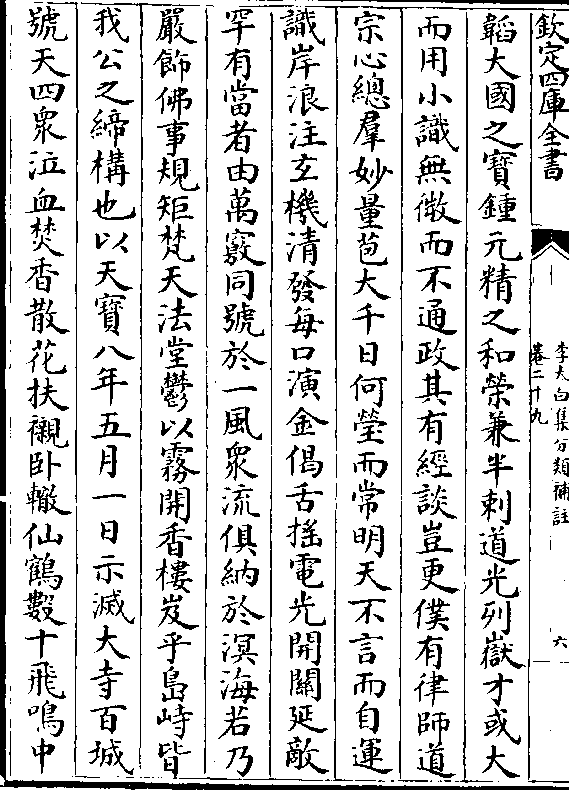 欽定四庫全書
李太白集分類補註
卷二十九
六
韜大國之寶鍾元精之和榮兼半刺道光列嶽才或大
而用小識無微而不通政其有經談豈更僕有律師道
宗心總羣妙量苞大千日何瑩而常明天不言而自運
識岸浪注玄機清發每口演金偈舌搖電光開關延敵
罕有當者由萬竅同號於一風衆流俱納於溟海若乃
嚴飾佛事規矩梵天法堂鬱以霧開香樓岌乎島峙皆
我公之締構也以天寶八年五月一日示滅大寺百城
號天四衆泣血焚香散花扶櫬卧轍仙鶴數十飛鳴中